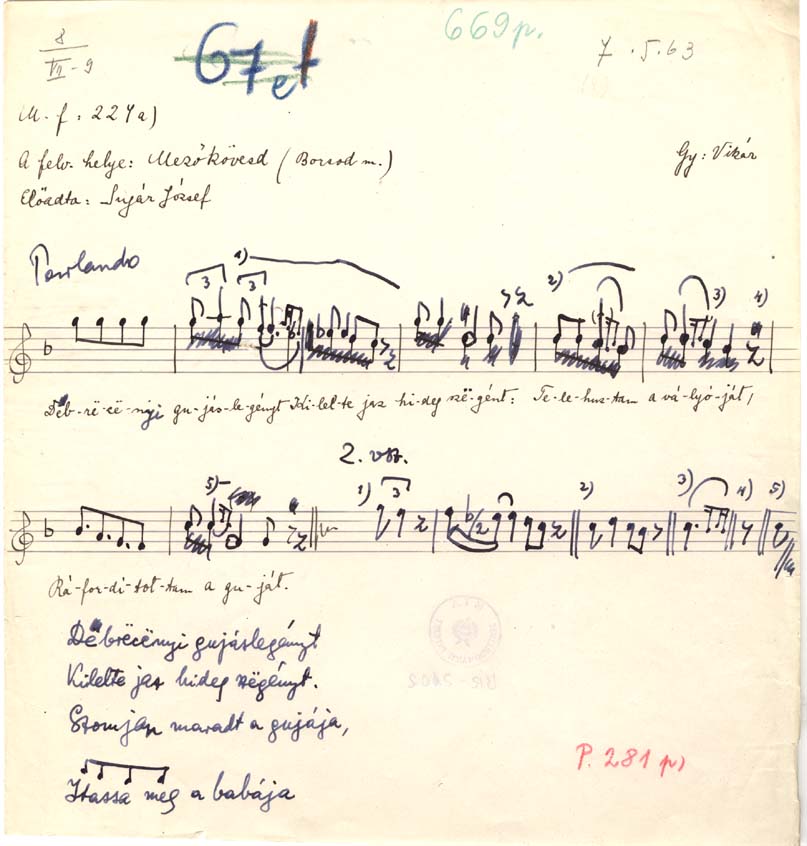 8
VII - 9
67et
669p.
7.5.63
M. f. 224a)
A felv. helye: Mezőkövesd (Borsod m.)
Gy: Vikár
Előadta: Sugár József
Parlando
3 3 1) 2) 3) 4)
Dëb-rë-cë-nyi gu-jás-le-gényt Ki-lel-te jaz hi-deg szë-gént: Te-le-huz-tam a vá-lyó-ját,
2. vsz.
5) 1) 3 2) 3) 4) 5)
Rá-for-di-tot-tam a gu-ját.
Dëbrëcënyi gujáslegényt
Kilelte jaz hideg szëgényt.
Szomjan maradt a gujája,
Itassa meg a babája
P. 281 p)